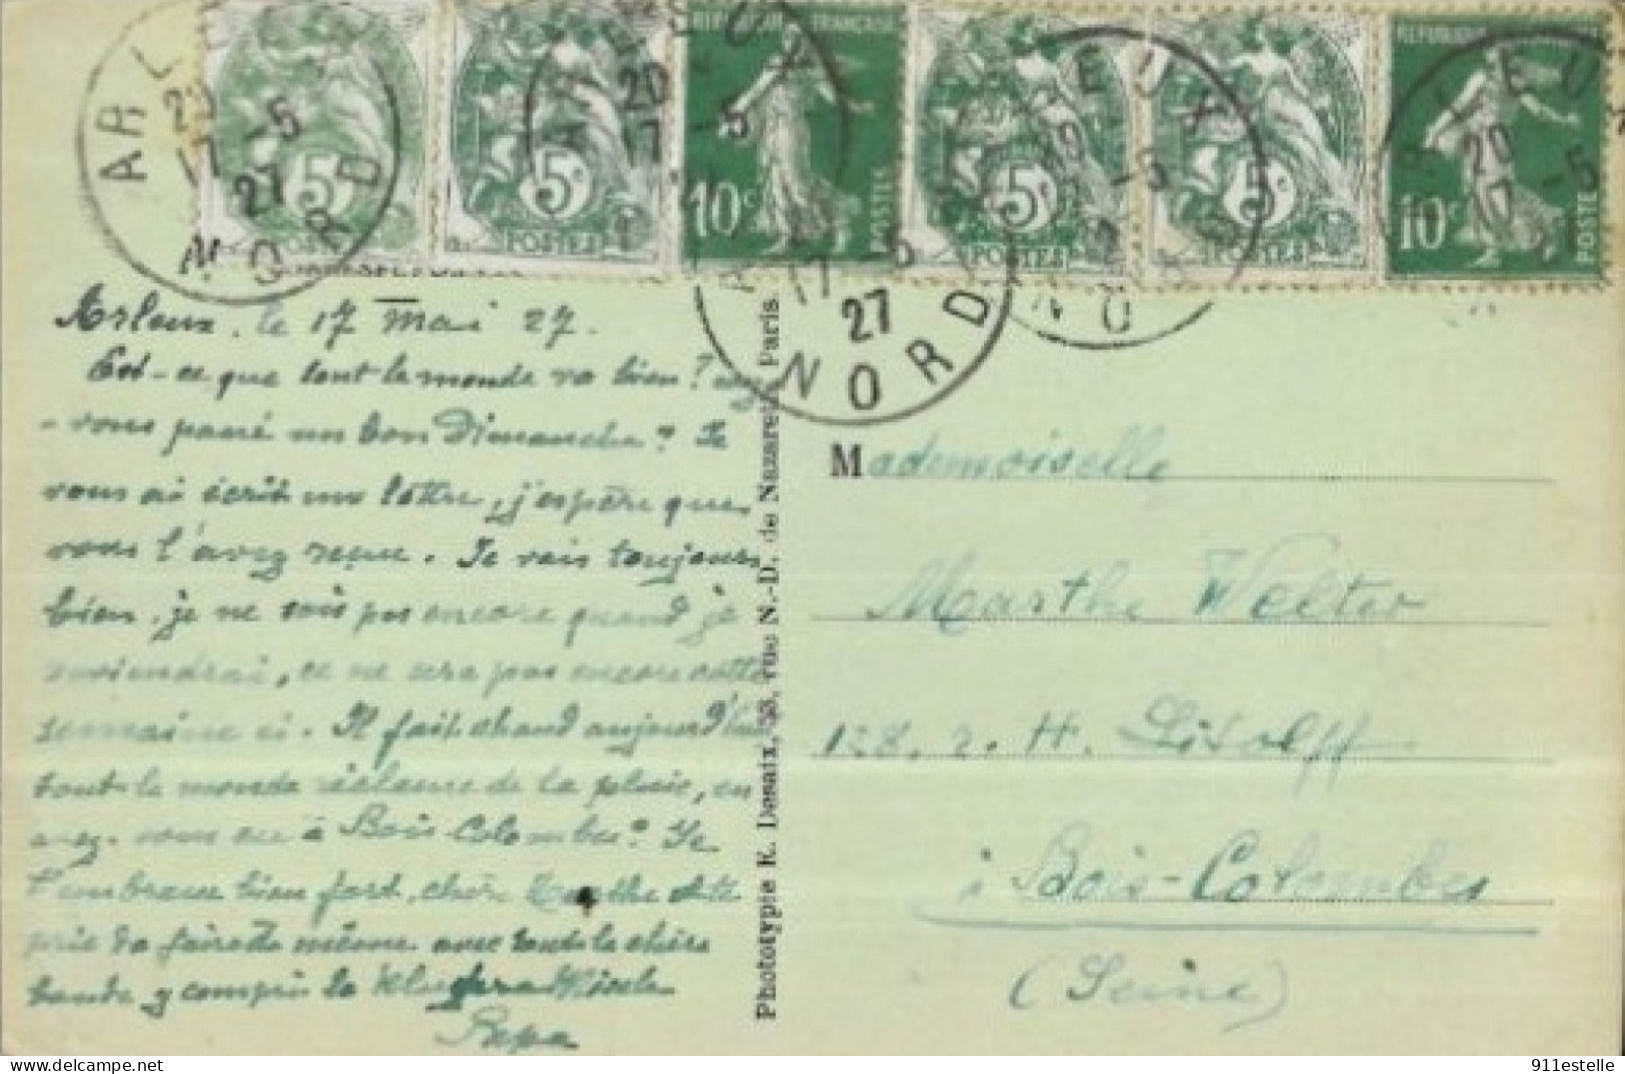 RÉPUBLIQUE FRANÇAISE
RÉPUBLIQUE
5c
5c
POSTES
10c
POSTES
5c
POSTES
5c
POSTES
10c
POSTES
ARLEUX
20
17 -5
27
NORD
Arleux, le 17 Mai 27.
Est-ce que tout le monde va bien? avez
-vous passé un bon Dimanche? Je
vous ai écrit une lettre, j'espère que
vous l'avez reçue. Je vais toujours
bien, je ne sais pas encore quand je
reviendrai, ce ne sera pas encore cette
semaine ci. Il fait chaud aujourd'hui
tout le monde réclame de la pluie, en
avez-vous eu à Bois-Colombes? Je
t'embrasse bien fort, chère Marthe et te
prie de faire de même avec toute la chère
bande y compris le
Papa
Phototypie E. Desaix, 53, rue N.-D. de Nazareth, Paris
Mademoiselle
Marthe Welter
128, r. H. Litolff
à Bois-Colombes
(Seine)
911estelle